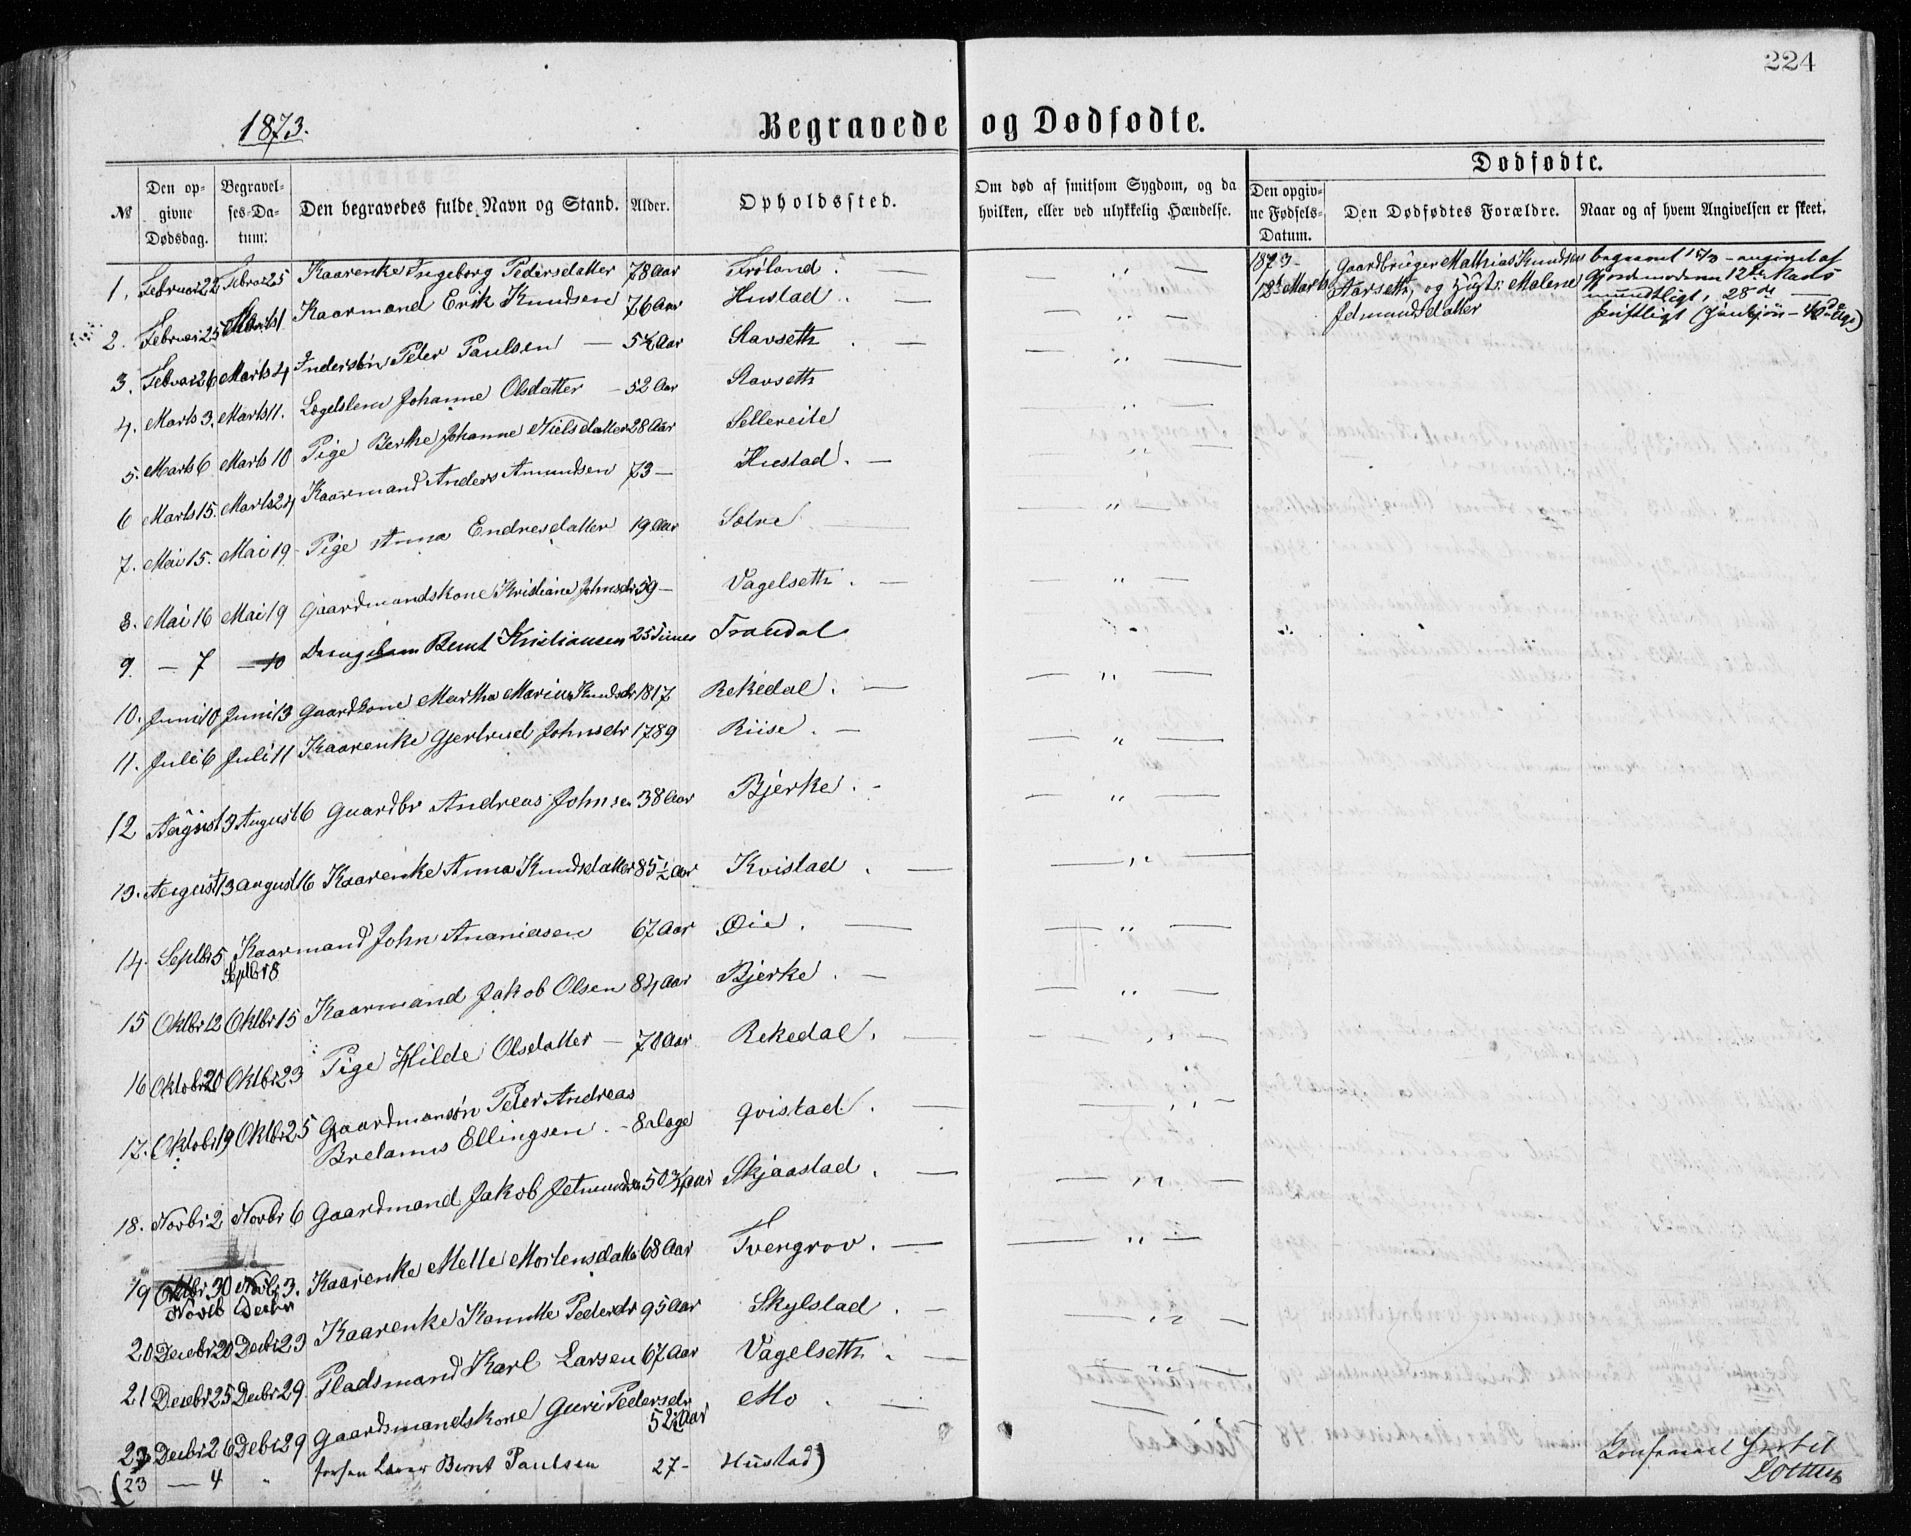 224
1873.
Begravede og Dødfødte.
Dødfødte.
№
Den opgivne Dødsdag.
Begravelses-Datum.
Den begravedes fulde Navn og Stand.
Alder.
Opholdssted.
Om død af smitsom Sygdom, og da hvilken, eller ved ulykkelig Hændelse.
Den opgivne Fødsels-Datum.
Den Dødfødtes Forældre.
Naar og af hvem Angivelsen er skeet.
1. Februar 22 Febvar 25 Kaarenke Ingeborg Pedersdatter 78 Aar Frøland. — „ —
2. Februar 25 Marts 1 Kaarmand Erik Knudsen 76 Aar Hustad. — „ —
3. Febvar 26 Marts 4 Inderstøn Peter Paulsen — 5½ Aar Stavseth. — „ —
4. Marts 3. Marts 11. Lægdslem Johanne Olsdatter — 52 Aar Stavseth — „ —
5. Marts 6 Marts 10 Pige Berthe Johanne Nielsdatter 28 Aar Sellereite — „ —
6 Marts 15. Marts 24 Kaarmand Anders Amundsen 73 — Hustad. — „ —
7. Mai 15. Mai 19 Pige Anna Endresdatter 19 Aar Sætre — „ —
8. Mai 16 Mai 19 Gaardmandskone Kristiane Johnsdr 59 — Vagelseth. — „ —
9 — 7 — 10 Drengebarn Bernt Kristiansen 25 Timer Trandal
10. Juni 10 Juni 13 Gaardkone Martha Marie Knudsdr 1817 Rekedal. — „ —
11. Juli 6 Juli 11 Kaarenke Gjertrud Johnsdr 1789 Riise. — „ —
12 August 3 August 6 Gaardbr Andreas Johnsen 38 Aar Bjerke. — „ —
13. August 13 August 16 Kaarenke Anna Knudsdatter 85½ Aar Kvistad. — „ —
14. Septbr 5 Septbr 8 Kaarmand John Ananiasen 67 Aar Øie. — „ —
15 Oktbr 12 Oktbr 15 Kaarmand Jakob Olsen 84 Aar Bjerke. — „ —
16 Oktobr 20 Oktbr 23 Pige Hilde Olsdatter — 78 Aar Rekedal. — „ —
17. Oktobr 19 Oktbr 25 Gaardmansøn Peter Andreas
Brelanus Ellingsen. — 8 Dage Qvistad. — „ —
18. Novbr 2 Novbr 6 Gaardmand Jakob Jetmundsen 50¾ Aar Skjaastad. — „ —
19 Oktbr 30 Novbr 3. Kaarenke Mette Mortensdatter 68 Aar Tvergrov. — „ —
Novb Decbr
20 Decbr 20 Decbr 23 Kaarenke Kanutte Pedersdr 95 Aar Skylstad. — „ —
21 Decbr 25 Decbr 29. Pladsmand Karl Larsen 67 Aar Vagelseth. — „ —
Decbr 26 Decbr 29 Gaardsmandskone Guri Pedersdr 52½ Aar Mo. —
(23 — 4 „ Bernt Paulsen 27 - Hustad)
1873 -
12te Marts
Gaardbruger Mathias Knudsen
Aarseth, og Hust: Malene
Jetmundsdatter
begravet 15/3 - angivet af
Gjordemoderen 12te Marts
mundtligt, 28de
skriftligt